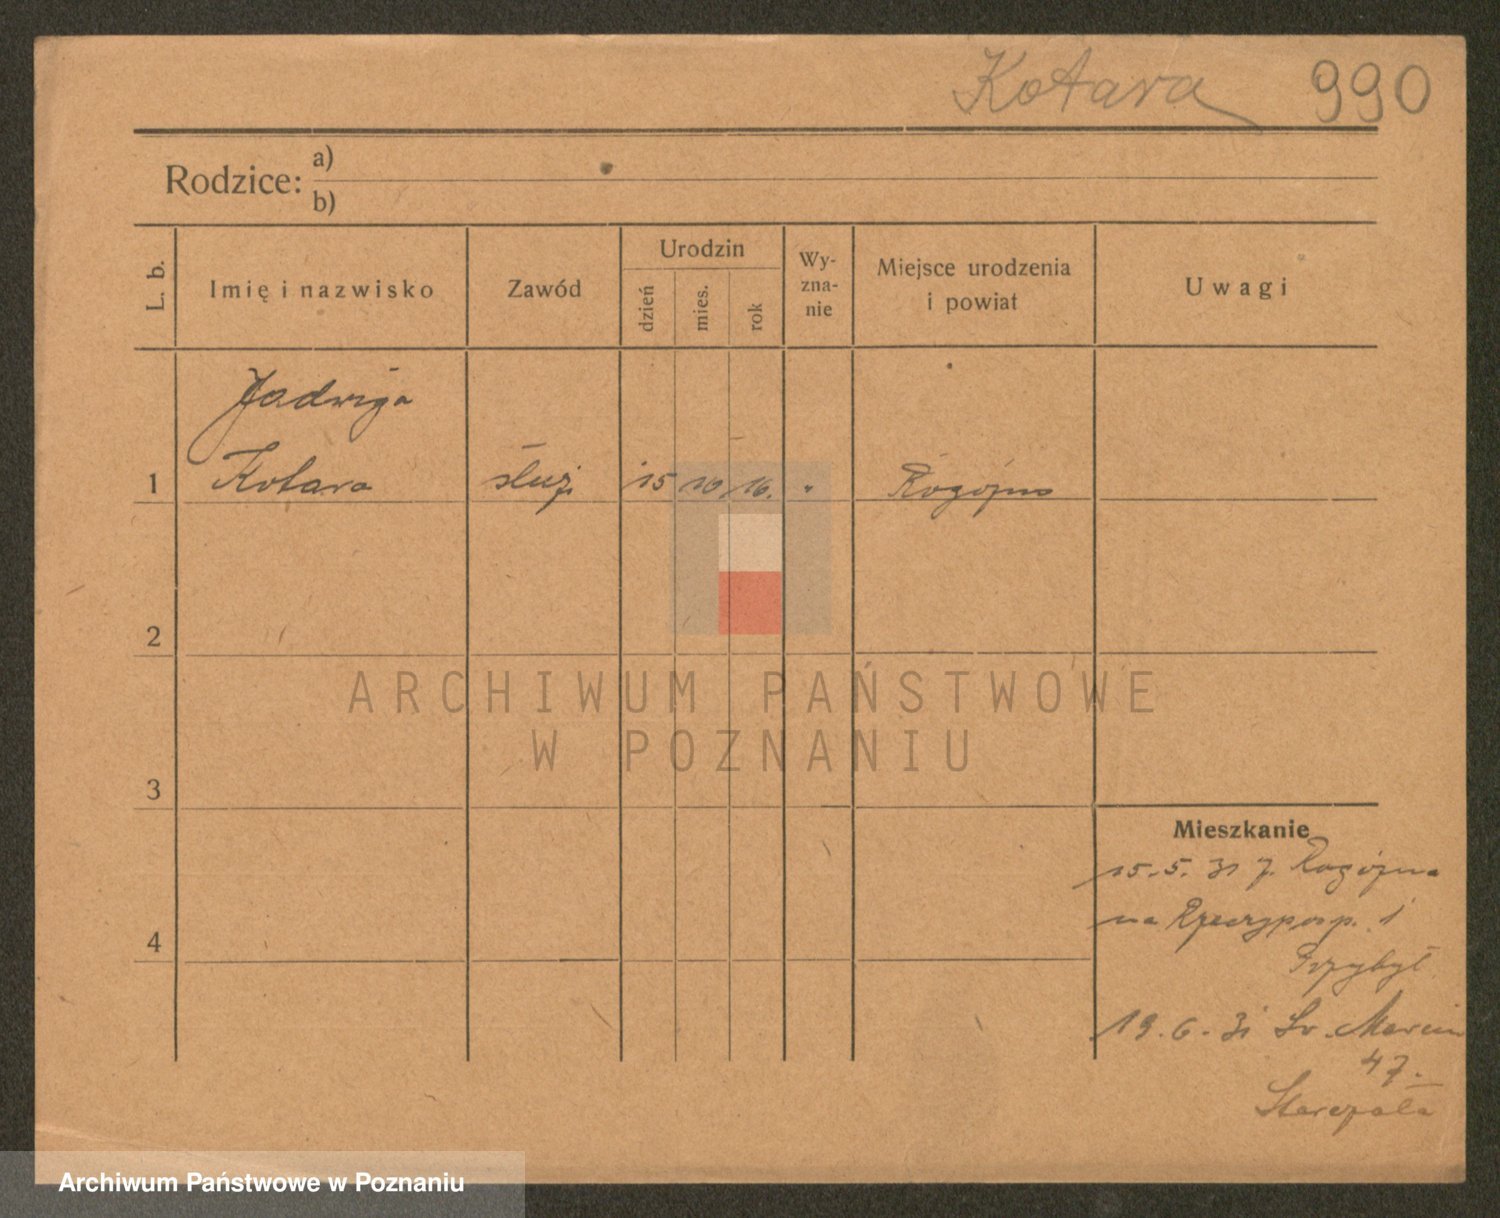 Kotara 990
Rodzice: a)
b)
L. b.
Imię i nazwisko
Zawód
Urodzin
dzień
mies.
rok
Wy-
zna-
nie
Miejsce urodzenia
i powiat
Uwagi
Jadwiga
1 Kotara służ. 15 10 16. " Rogoźno
2
ARCHIWUM PAŃSTWOWE
W POZNANIU
3
Mieszkanie
15.5.31 z Rogoźna
4
na Rzeczyposp. 1
Przybył
19.6.31 Św. Marcin
47.
Archiwum Państwowe w Poznaniu